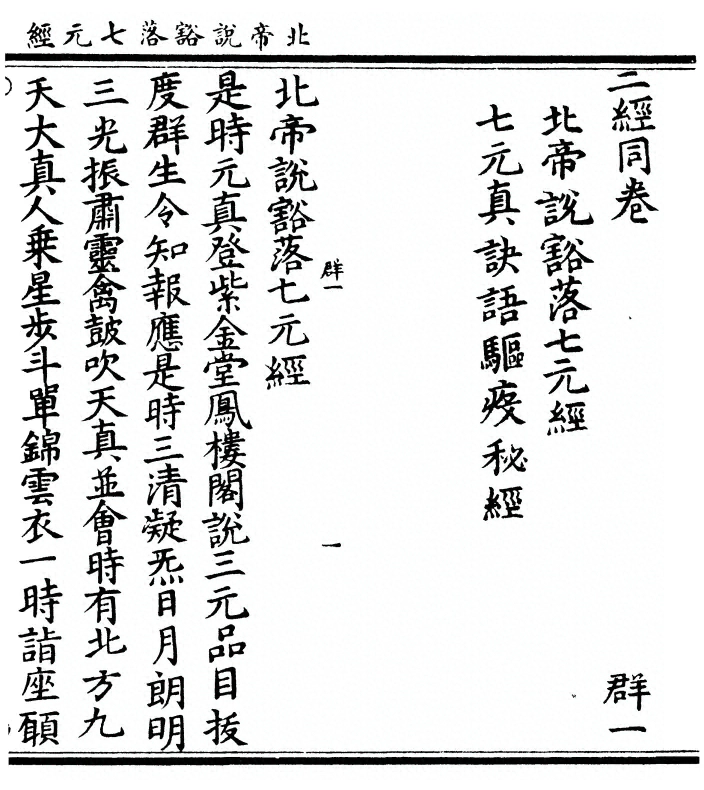 北帝說豁落七元經
二經同卷
群一
北帝說豁落七元經
七元真訣語驅疫秘經
群一
一
北帝說豁落七元經
是時元真登紫金堂鳳樓閣說三元品目拔
度群生令知報應是時三清凝炁日月朗明
三光振肅靈禽皷吹天真並會時有北方九
天大真人乘星步斗單錦雲衣一時詣座願